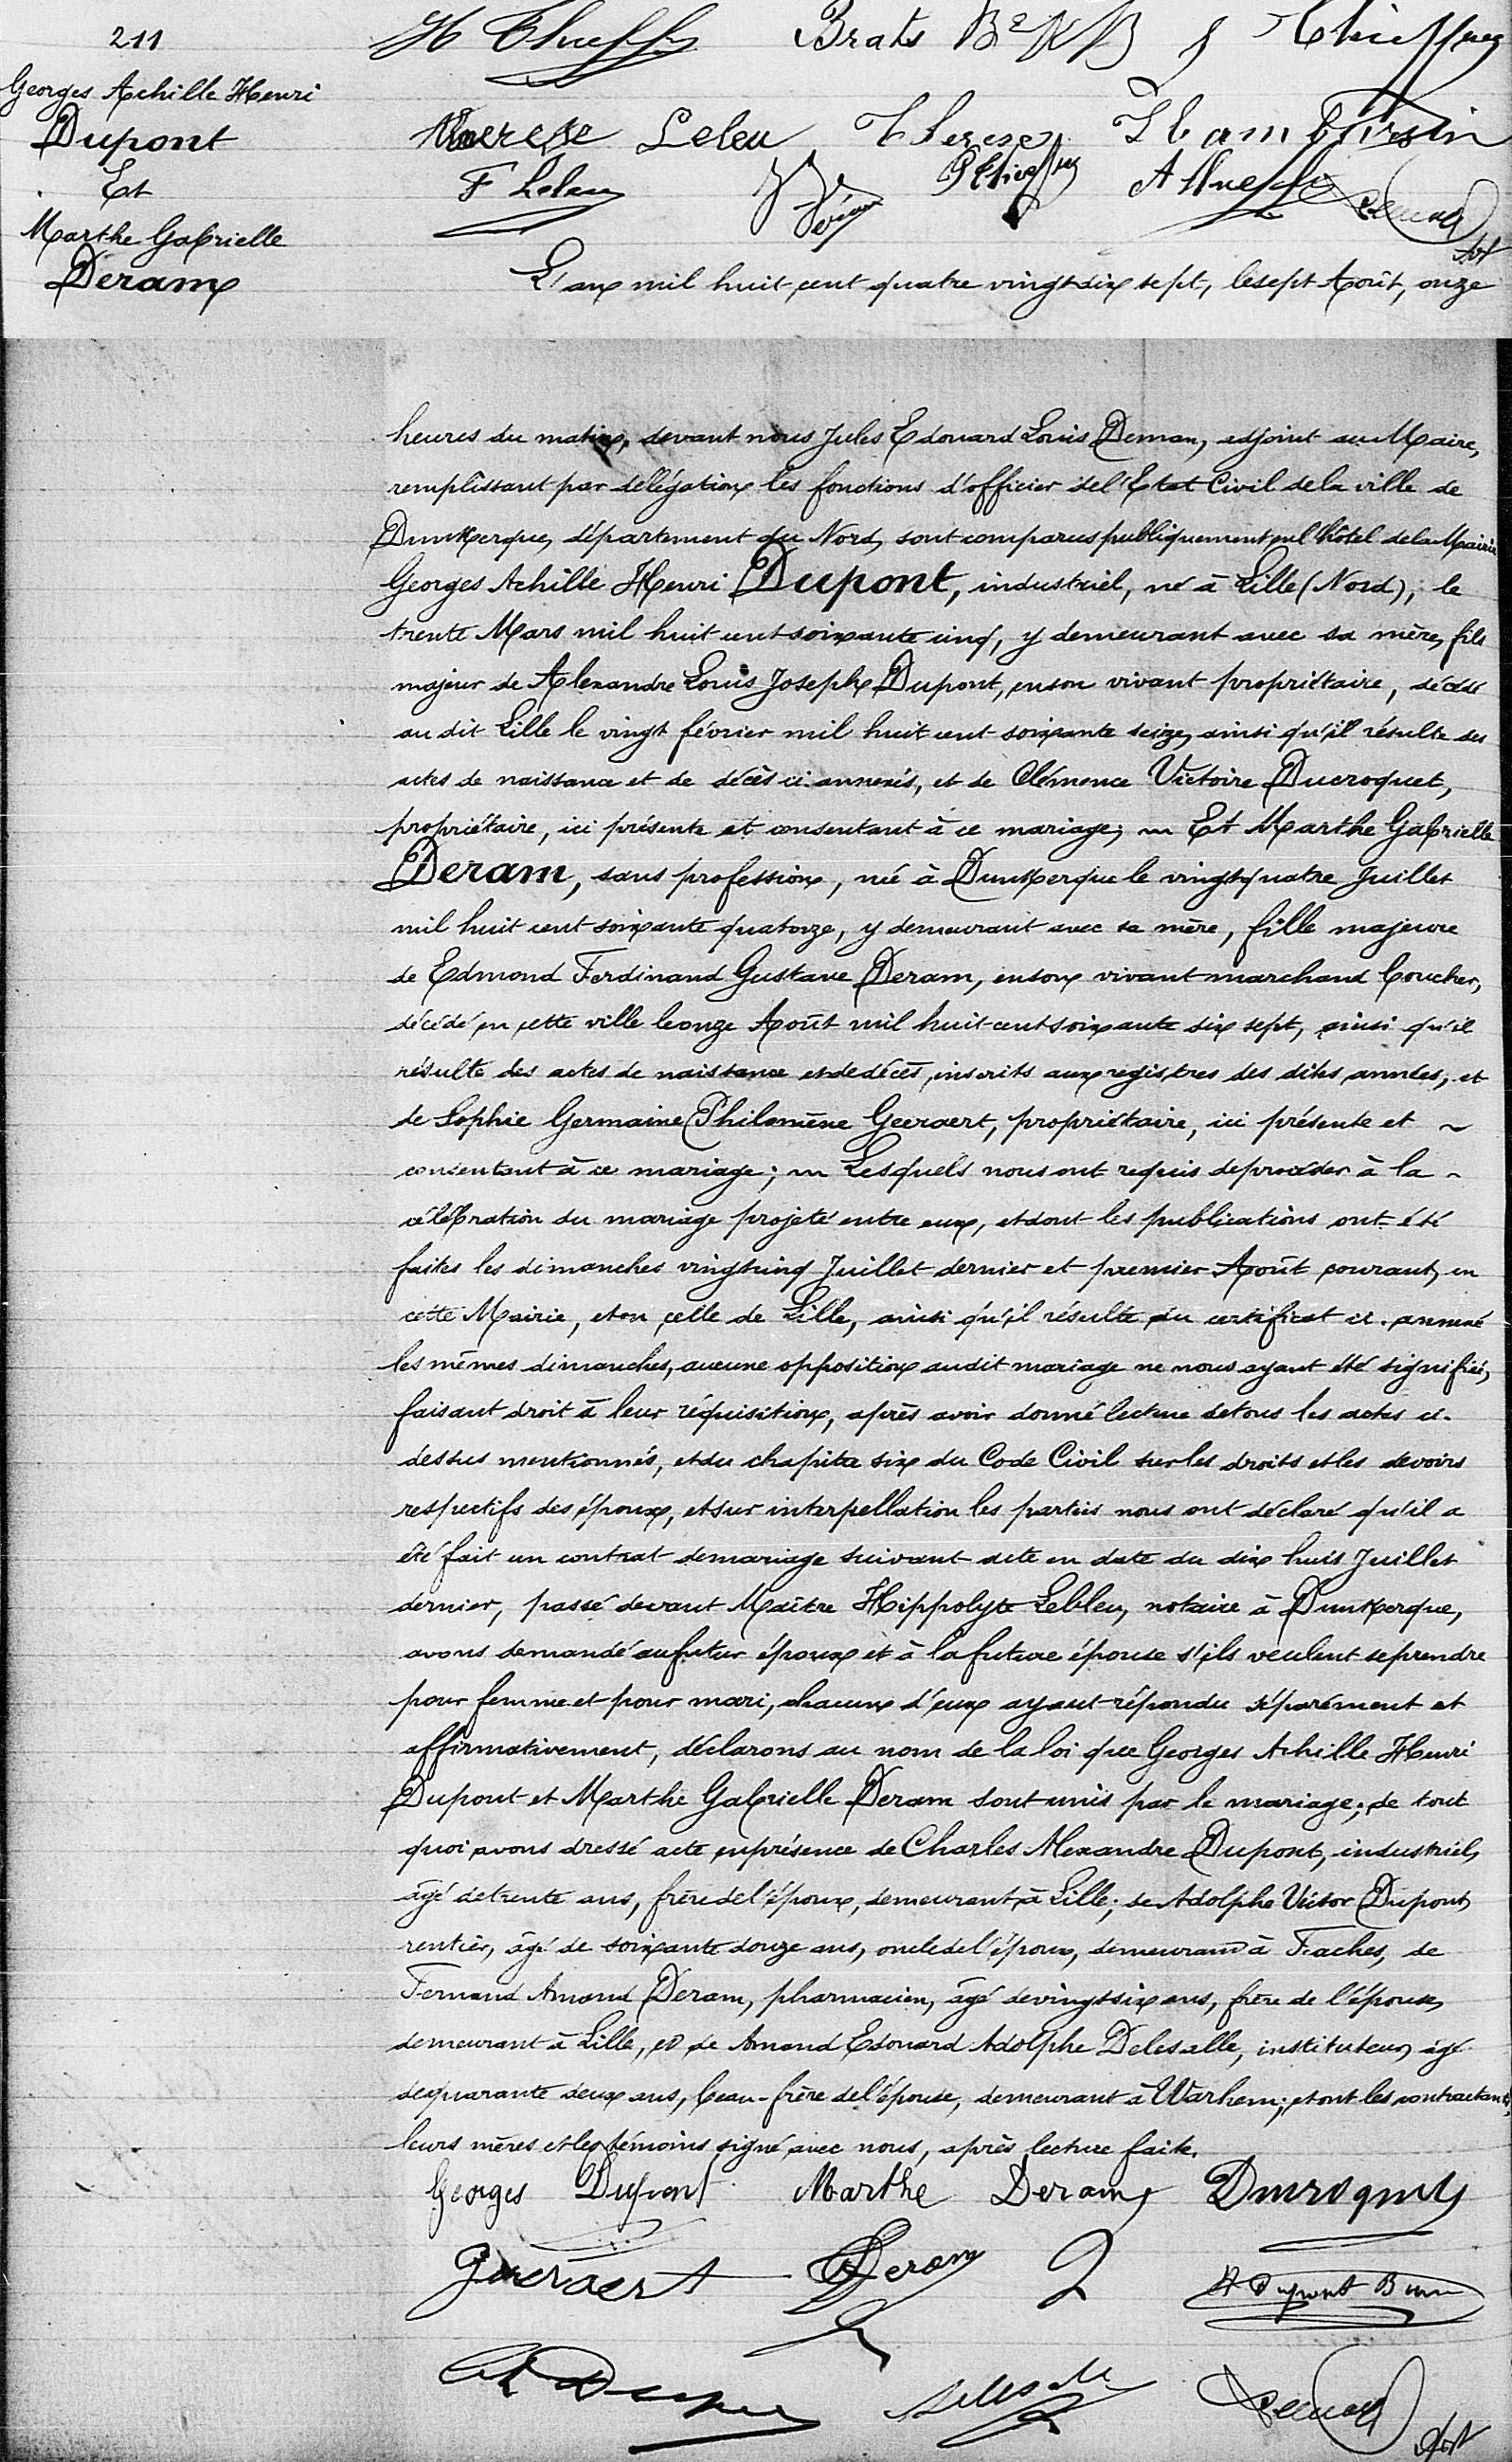 211
Georges Achille Henri
Dupont
Et
Marthe Gabrielle
Deram
Brats
Therese Leleu Therese
F Leleu
L'an mil huit cent quatre vingt dix sept, le sept Août, onze
heures du matin, devant nous Jules Edouard Louis Deman, adjoint au Maire,
remplissant par délégation les fonctions d'officier de l'Etat Civil de la ville de
Dunkerque, département du Nord, sont comparus publiquement en l'hôtel de la Mairie
Georges Achille Henri Dupont, industriel, né à Lille (Nord), le
trente Mars mil huit cent soixante cinq, y demeurant avec sa mère, fils
majeur de Alexandre Louis Joseph Dupont, en son vivant propriétaire, décédé
au dit Lille le vingt février mil huit cent soixante seize, ainsi qu'il résulte des
actes de naissance et de décès ci-annexés, et de Clémence Victoire Ducroquet,
propriétaire, ici présente et consentant à ce mariage; Et Marthe Gabrielle
Deram, sans profession, née à Dunkerque le vingt quatre Juillet
mil huit cent soixante quatorze, y demeurant avec sa mère, fille majeure
de Edmond Ferdinand Gustave Deram, en son vivant marchand boucher,
décédé en cette ville le onze Août mil huit cent soixante dix sept, ainsi qu'il
résulte des actes de naissance et de décès, inscrits aux registres des dites années, et
de Sophie Germaine Philomène Geeraert, propriétaire, ici présente et
consentant à ce mariage; Lesquels nous ont requis de procéder à la
célébration du mariage projeté entre eux, et dont les publications ont été
faites les dimanches vingt cinq Juillet dernier et premier Août courant, en
cette Mairie, et en celle de Lille, ainsi qu'il résulte du certificat ci-annexé
les mêmes dimanches, aucune opposition audit mariage ne nous ayant été signifiée,
faisant droit à leur réquisition, après avoir donné lecture de tous les actes ci-
dessus mentionnés, et du chapitre six du Code Civil sur les droits et les devoirs
respectifs des époux, et sur interpellation les parties nous ont déclaré qu'il a
été fait un contrat de mariage suivant acte en date du dix huit Juillet
dernier, passé devant Maître Hippolyte Lebleu, notaire à Dunkerque,
avons demandé au futur époux et à la future épouse s'ils veulent se prendre
pour femme et pour mari, chacun d'eux ayant répondu séparément et
affirmativement, déclarons au nom de la loi que Georges Achille Henri
Dupont et Marthe Gabrielle Deram sont unis par le mariage; de tout
quoi avons dressé acte en présence de Charles Alexandre Dupont, industriel,
âgé de trente ans, frère de l'époux, demeurant à Lille; de Adolphe Victor Dupont,
rentier, âgé de soixante douze ans, oncle de l'époux, demeurant à Faches, de
Fernand Amand Deram, pharmacien, âgé de vingt six ans, frère de l'épouse,
demeurant à Lille, et de Amand Edouard Adolphe Delesalle, instituteur, âgé
de quarante deux ans, beau-frère de l'épouse, demeurant à Warhem; et ont les contractants,
leurs mères et les témoins signé avec nous, après lecture faite.
Georges Dupont Marthe Deram Ducroquet
Geeraert Deram
Delesalle